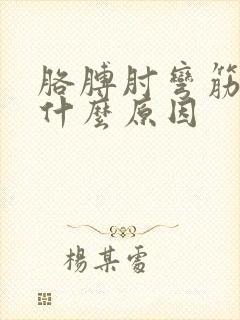 胳膊肘彎筋
什麼原因
楊某雷